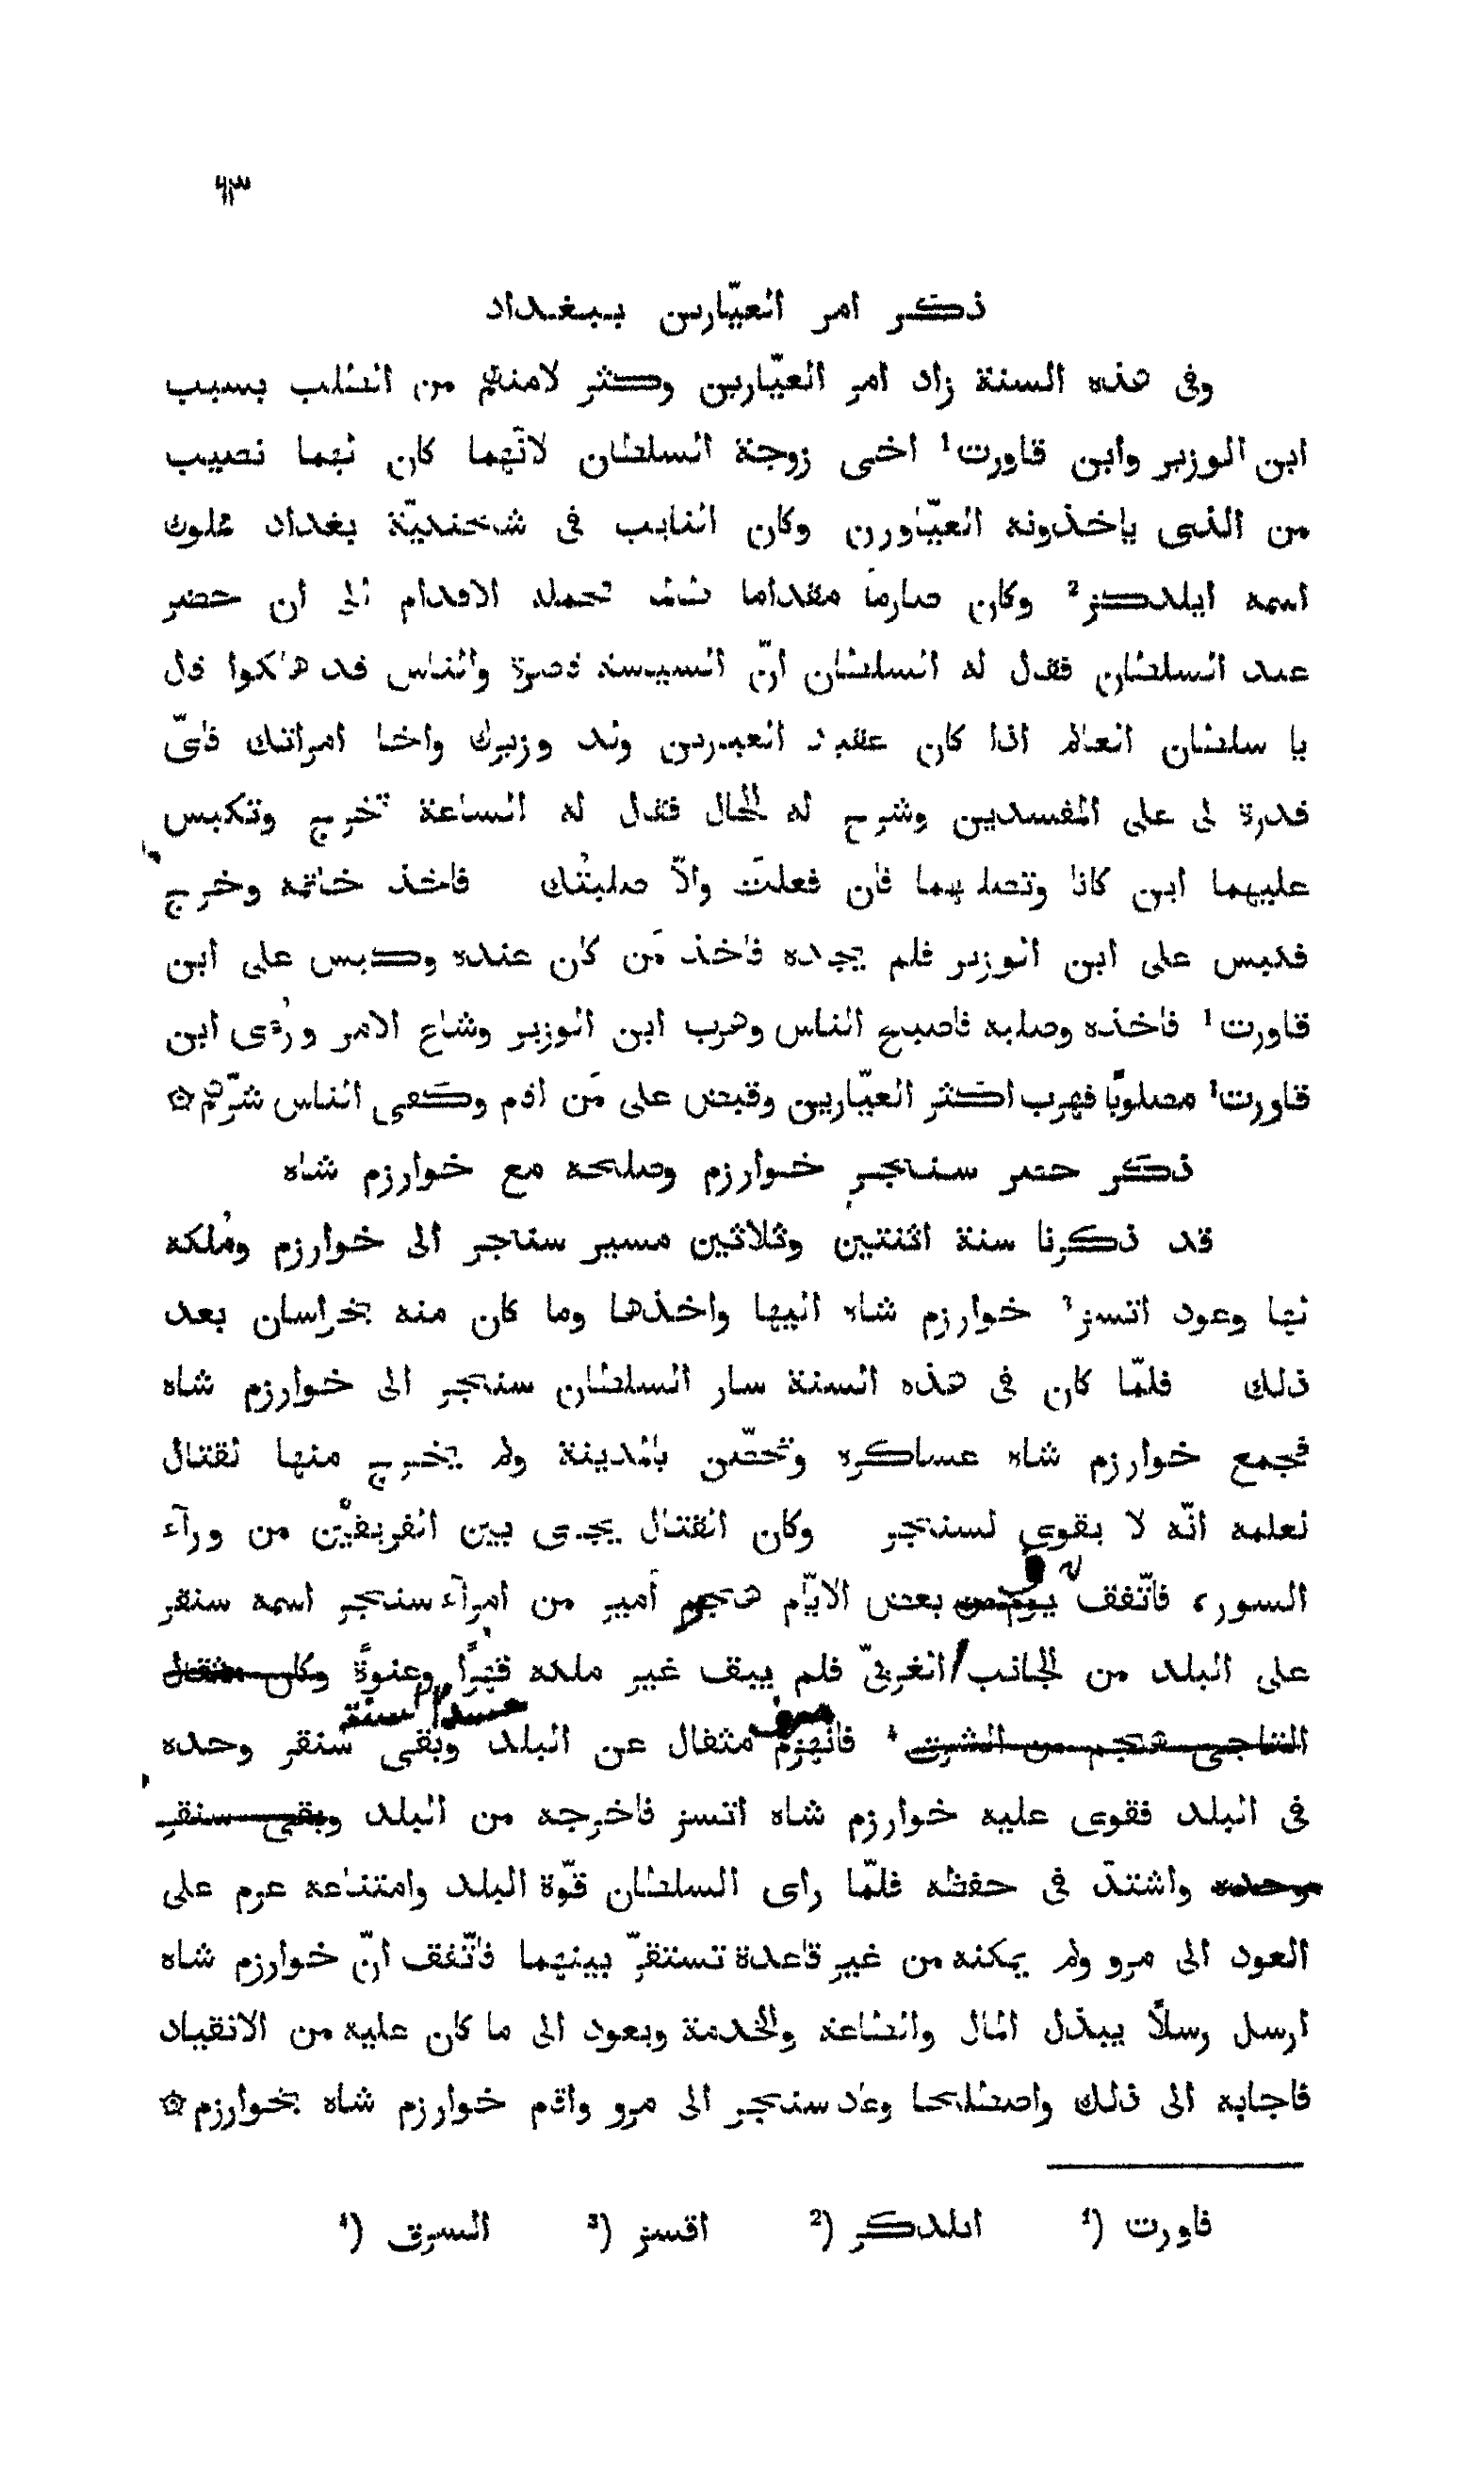 ٦٣
ذكر امر العيّارين ببغداد
وفى هذه السنة زاد امر العيّارين وكثر لامنهم من الطلب بسبب
ابن الوزير وابن قاورت¹ اخى زوجة السلطان لانّهما كان لهما نصيب
من الذى ياخذونه العيّاورن وكان النايب فى شحنديّة بغداد مملوك
اسمه ايلدكز² وكان صارما مقداما تحمله الاقدام الى ان حضر
عند السلطان فقال له السلطان انّ السيسه قصرة والناس قد هلكوا قال
يا سلطان العالم اذا كان عقيد العيارين ولد وزيرك واخا امراتك فاىّ
قدرة لى على المفسدين وشرح له الحال فقال له الساعة تخرج وتكبس
عليهما اين كانا وتصلبهما فان فعلتَ والّا صلبتُك فاخذ خاتمه وخرج
فكبس على ابن الوزير فلم يجده فاخذ مَن كان عنده وكبس على ابن
قاورت¹ فاخذه وصلبه فاصبح الناس وهرب ابن الوزير وشاع الامر ورُءى ابن
قاورت¹ مصلوبًا فهرب اكثر العيّارين وقبض على مَن اقم وكفى الناس شرّهم ۞
ذكر حصر سنجر خوارزم وصلحه مع خوارزم شاه
قد ذكرنا سنة اثنتين وثلاثين مسير سنجر الى خوارزم ومُلكه
لها وعود اتسز³ خوارزم شاه اليها واخذها وما كان منه بخراسان بعد
ذلك فلمّا كان فى هذه السنة سار السلطان سنجر الى خوارزم شاه
فجمع خوارزم شاه عساكره وتحصّن بالمدينة ولم يخرج منها لقتال
لعلمه انّه لا يقوى لسنجر وكان القتال يجرى بين الفريقَيْن من ورآء
السور، فاتّفق بعض الايّام هجم أمير من امرآء سنجر اسمه سنقر
على البلد من الجانب الغربىّ فلم يبق غير ملكه قهرًا وعنوةً وكان مثقال
التاجى هجم من الشرق ⁴ فانهزم مثقال عن البلد وبقى سنقر وحده
فى البلد فقوى عليه خوارزم شاه اتسز فاخرجه من البلد وبقى سنقر
وحده واشتدّ فى حفظه فلمّا راى السلطان قوّة البلد وامتناعه عزم على
العود الى مرو ولم يمكنه من غير قاعدة تستقرّ بينهما فاتّفق انّ خوارزم شاه
ارسل رسلًا يبذل المال والطاعة والخدمة ويعود الى ما كان عليه من الانقياد
فاجابه الى ذلك واصطلحا وعاد سنجر الى مرو واقم خوارزم شاه بخوارزم ۞
¹) فاورت ²) اىلدكر ³) اقسز ⁴) السرق